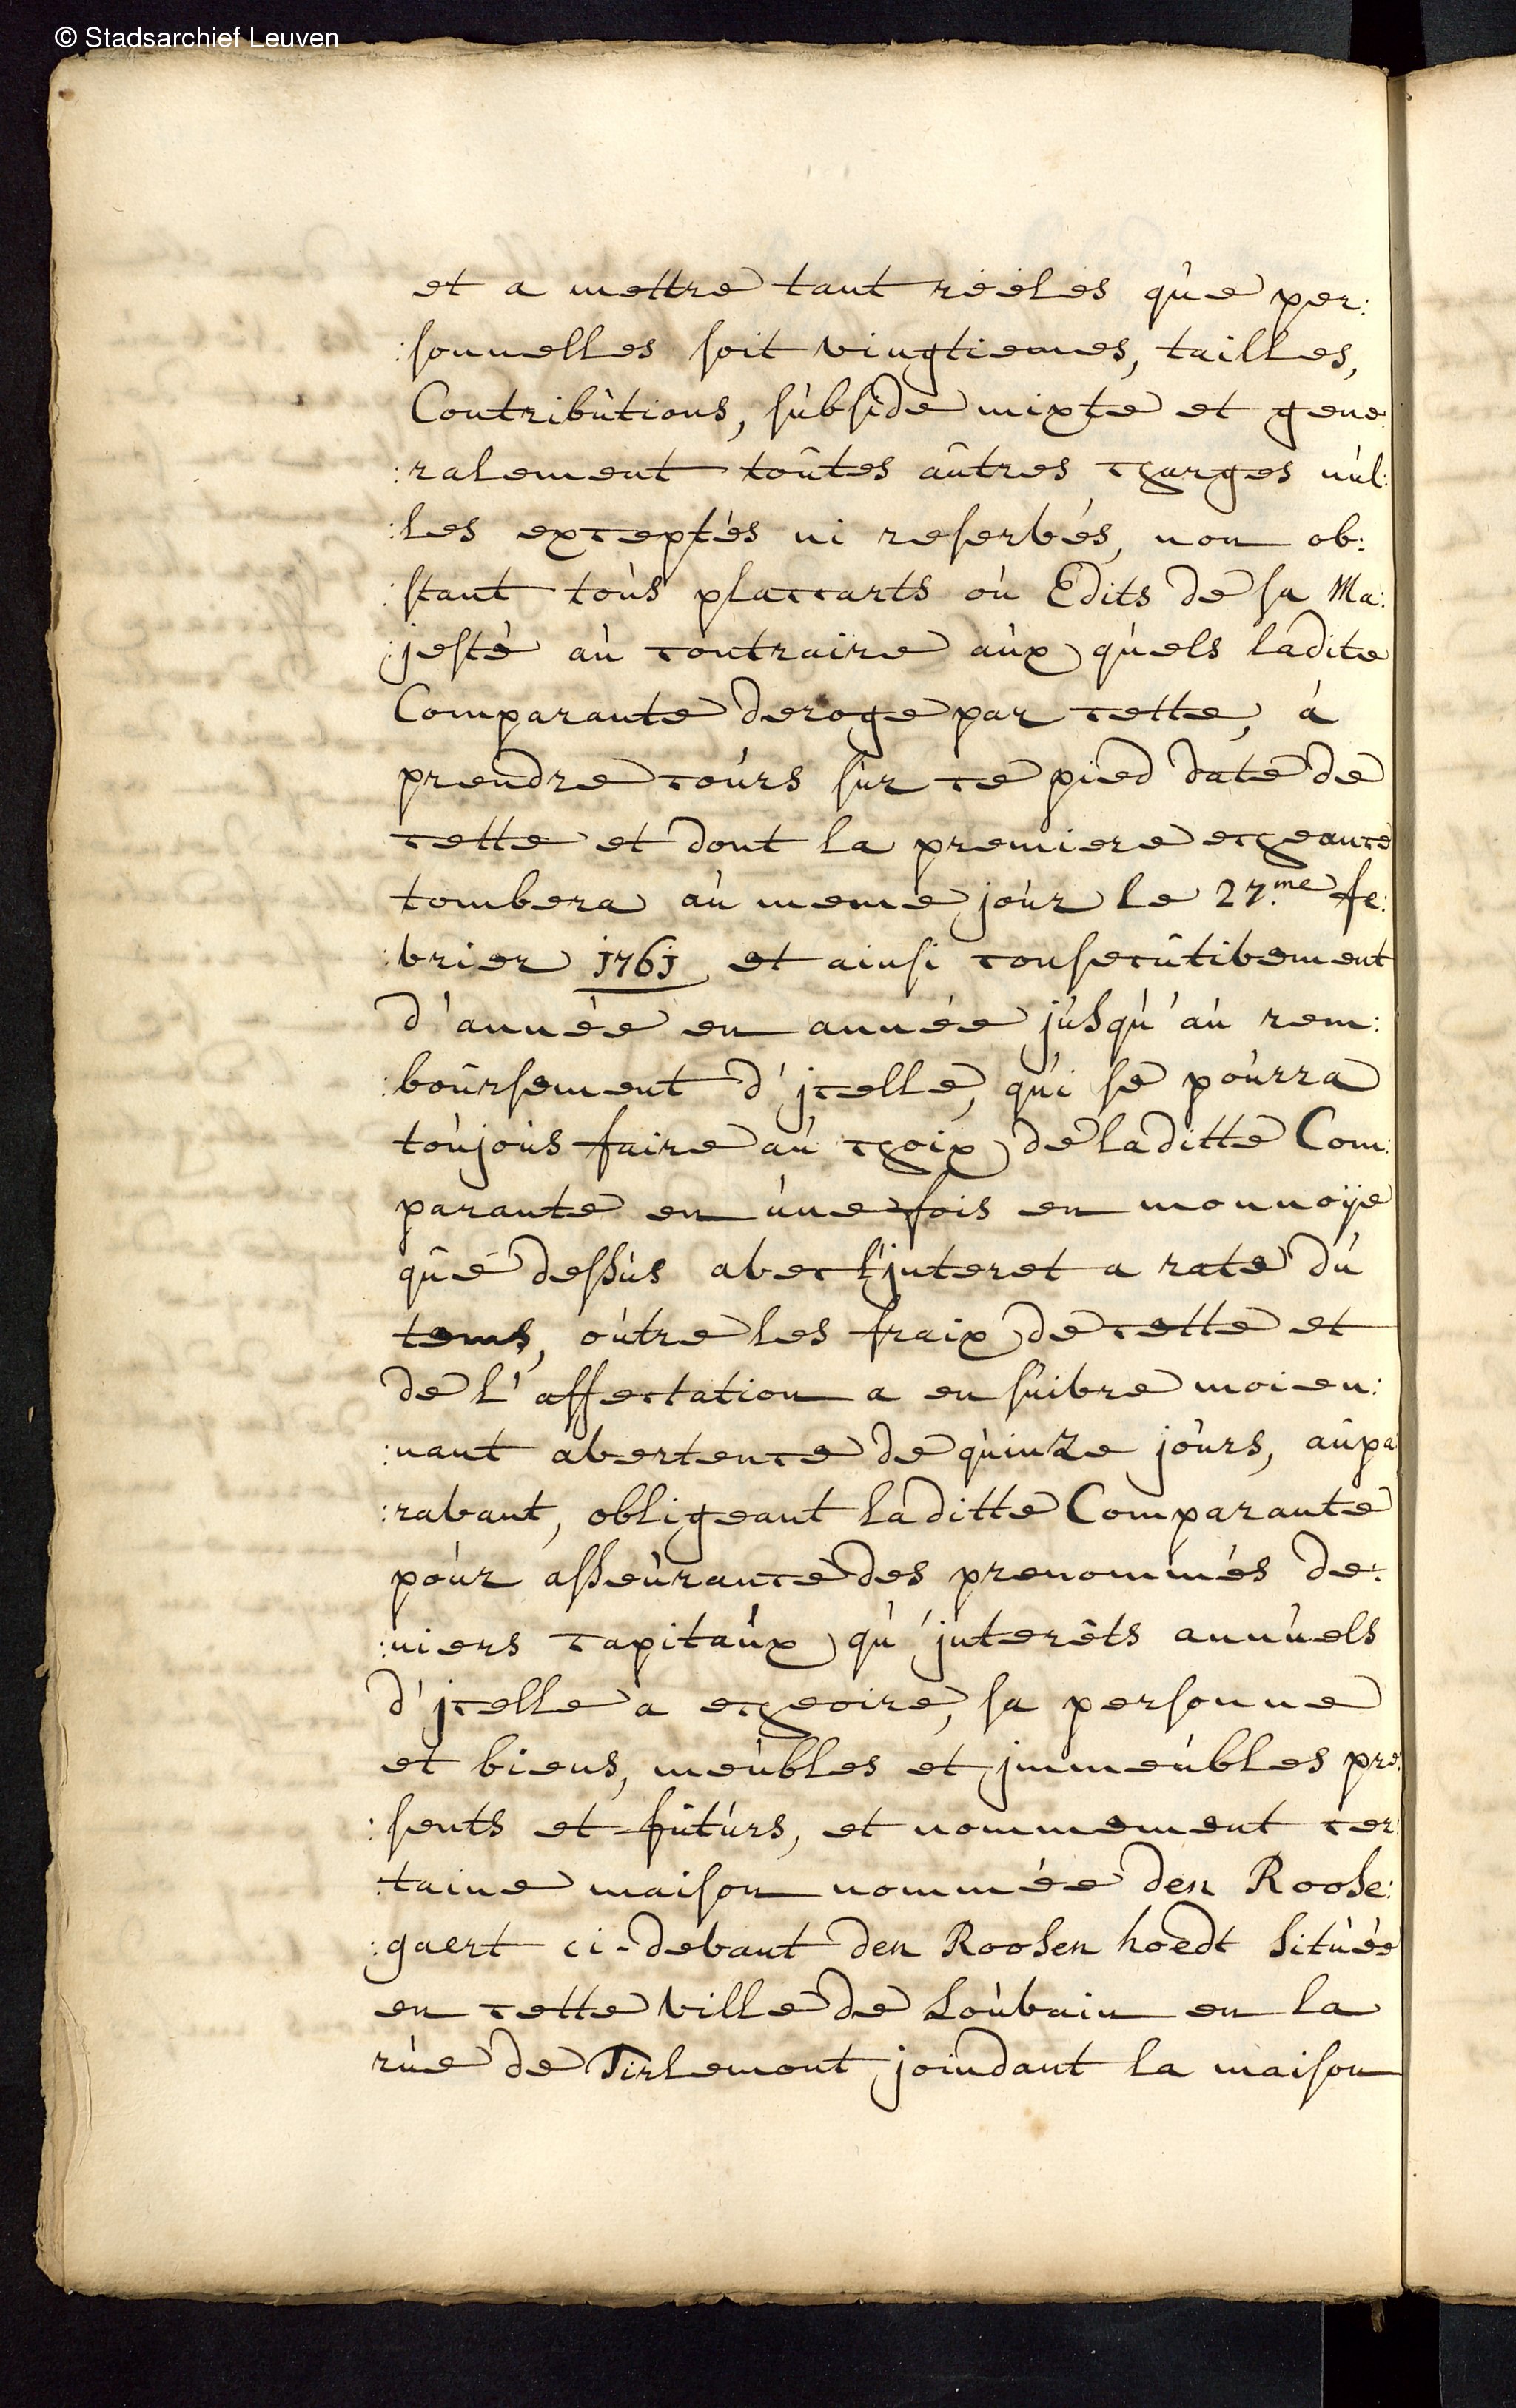 © Stadsarchief Leuven
et a mettre tant réélés que per:
:sonnelles soit vingtiemes, tailles,
Contributions, subside mixte et gene:
:ralement toutes autres charges nul:
:les exceptés ni reservés, non ob:
:stant tous placcarts ou Edits de sa Ma:
:jesté au contraire aux quels ladite
Comparante deroge par cette, á
prendre cours sur ce pied date de
cette et dont la premiere echeance
tombera au meme jour le 27.me fe:
:vrier 1761 et ainsi consecutivement
d'année en année jusqu'au rem:
:boursement d'jcelle, qui se pourra
toujous faire au choix de laditte Com:
parante en une fois en monnoÿe
que dessus avec l'jnteret a rate du
tems, outre les fraix de cette et
de l'affectation a en suivre moien:
:nant avertence de quinze jours, aupa:
:ravant, obligeant laditte Comparante
pour asseurance des prenommés de:
:niers capitaux qu'jnterêts annuels
d'jcelle a echeoire, sa personne
et biens, meubles et jmmeubles pre:
:sents et futurs, et nommement cer:
:taine maison nommée den Roose:
:gaert ci-devant den Roosen hoedt située
en cette ville de Louvain en la
rue de Tirlemont joindant la maison